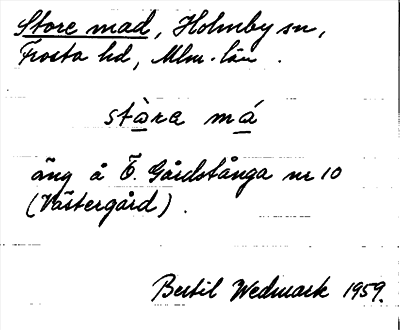 Store mad, Holmby sn,
Frosta hd, Mlm. län.
stàra má
äng å Ö. Gårdstånga nr 10
(Västergård).
Bertil Wedmark 1959.